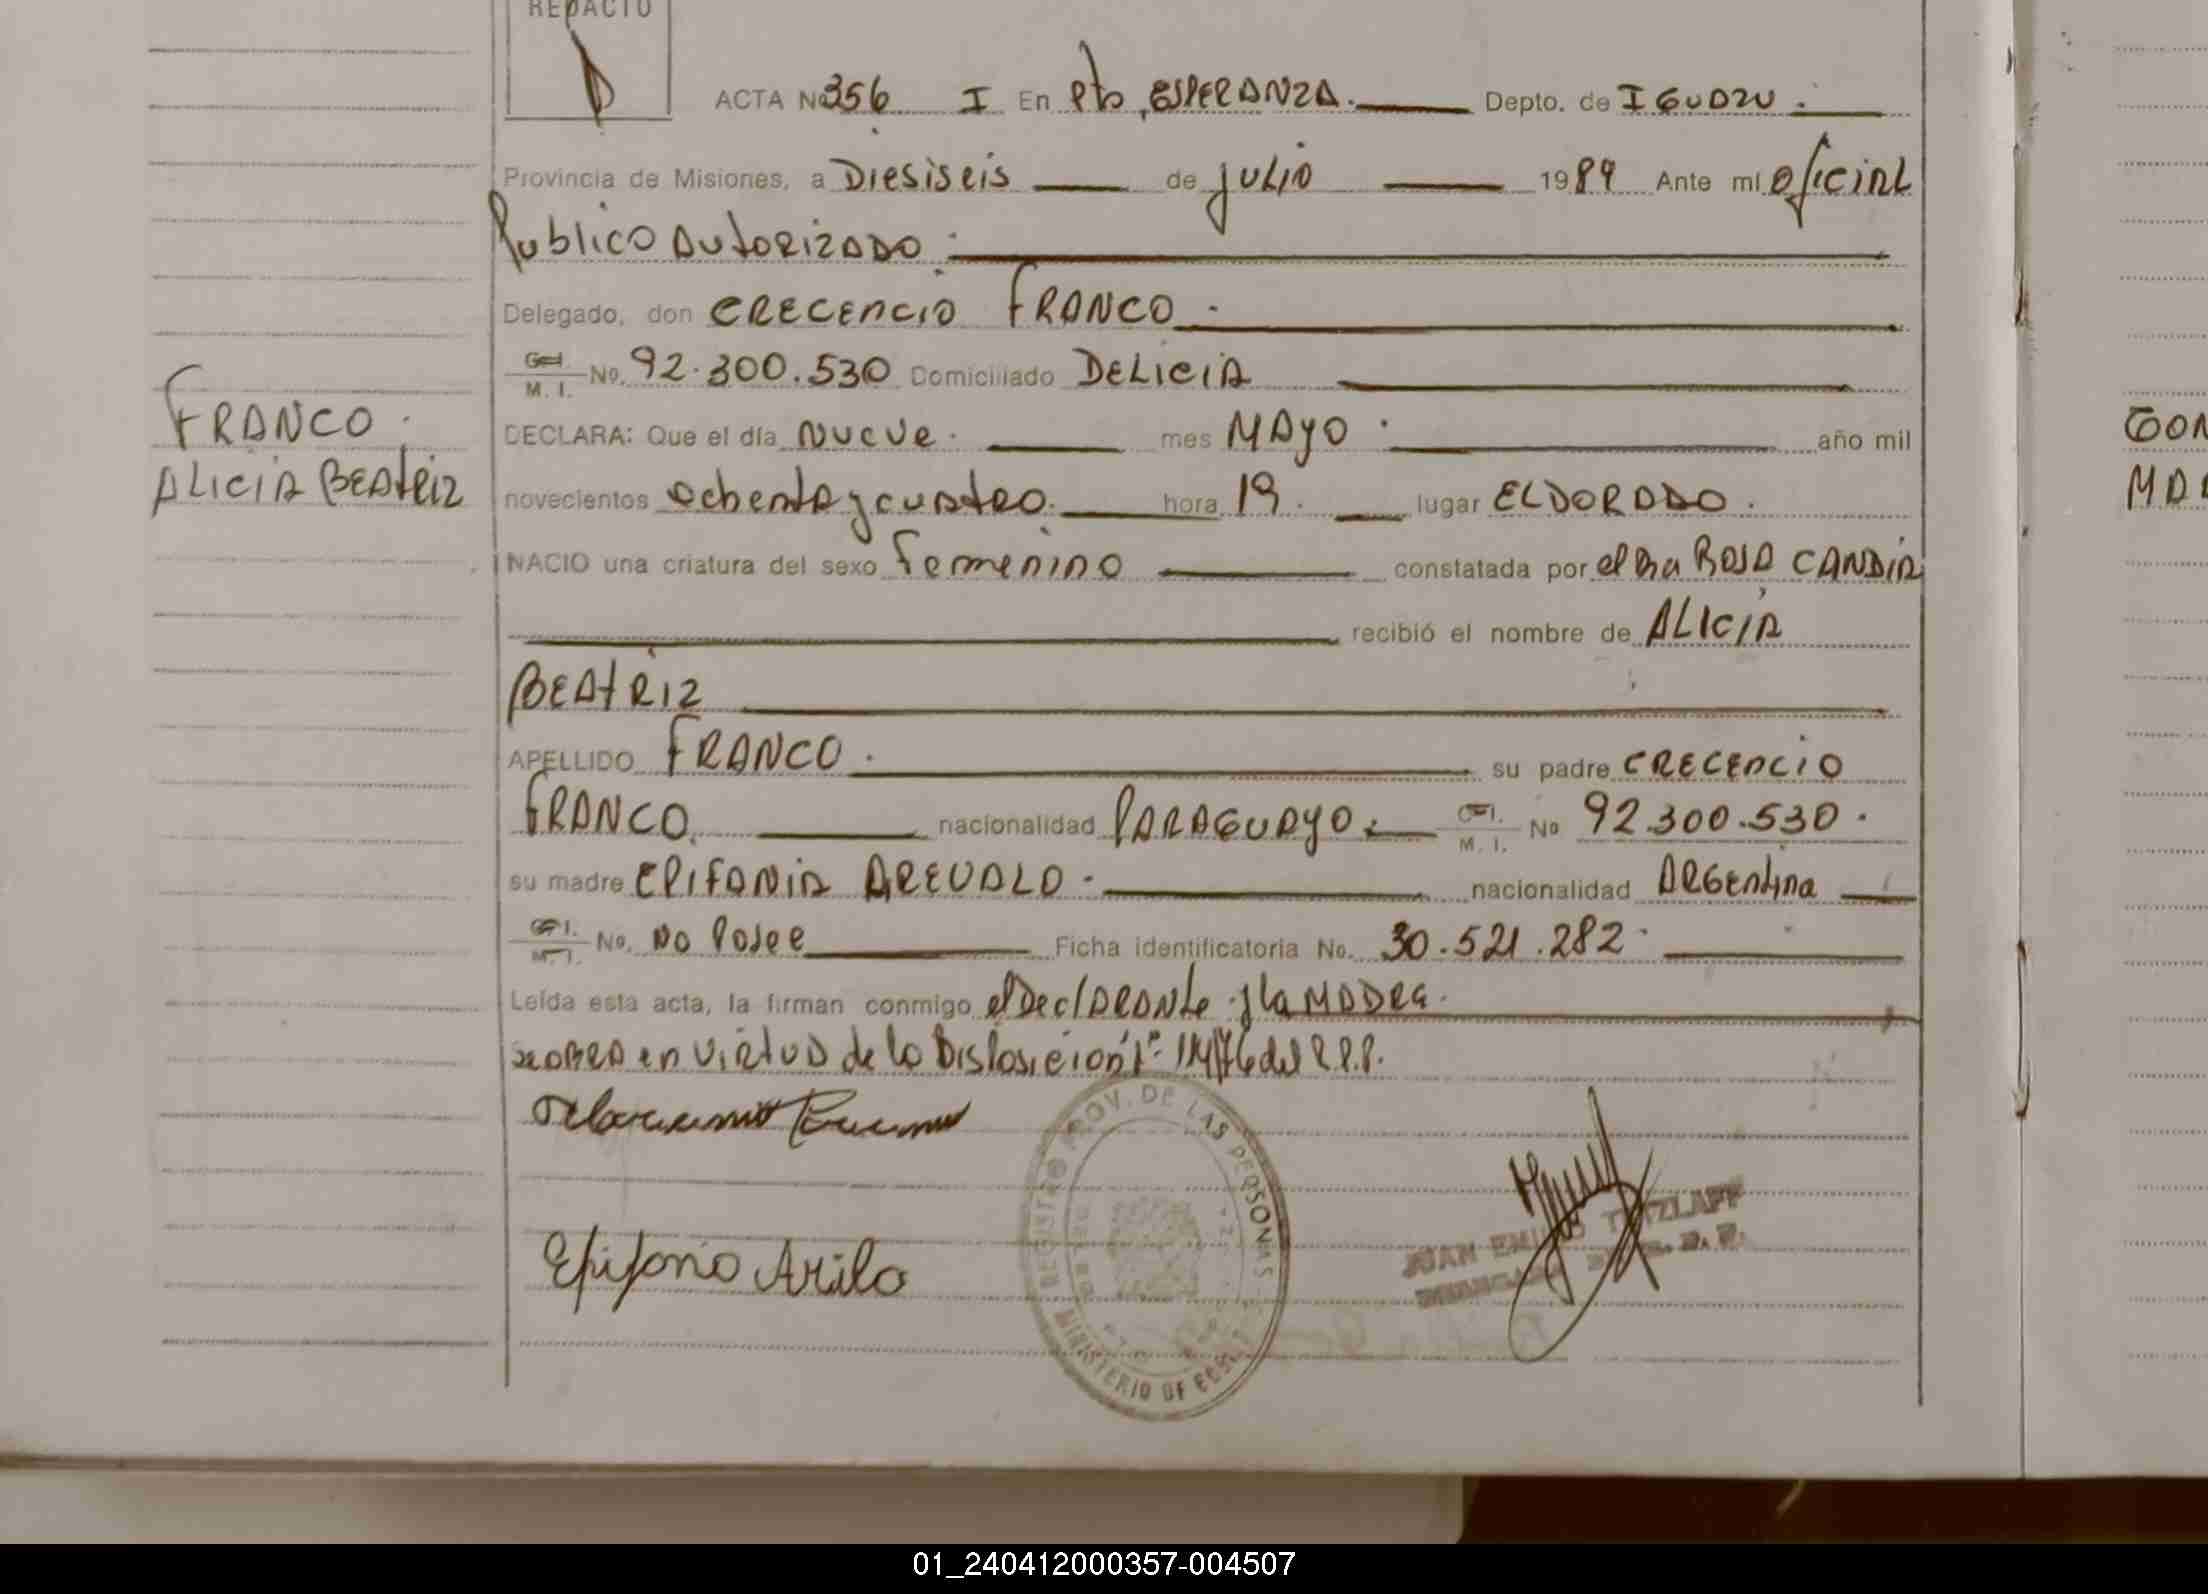 REDACTO
ACTA No 356 I En Pto, ESPERANZA. Depto. de IGUAZU.
Provincia de Misiones, a Diesiseis de julio 1984 Ante mí oficial
Publico Autorizado
Delegado, don CRECENCIO FRANCO.
M. I. No. 92.300.530 Domiciliado DELICIA
FRANCO.
DECLARA: Que el día nueve. mes MAYO. año mil
ALICIA BEAtRiz
novecientos ochenta y cuatro. hora 19. lugar ELDORADO.
NACIO una criatura del sexo femenino constatada por el Dra ROSA CANDIA
recibió el nombre de ALICIA
BEAtRIZ
APELLIDO FRANCO. su padre CRECENCIO
FRANCO. nacionalidad PARAGUAYO. M. I. No 92.300.530.
su madre EPIFANIA AREVALO. nacionalidad ARGEntina
No. No Posee Ficha identificatoria No. 30.521.282.
Leída esta acta, la firman conmigo el DeclARANte y la MADRE.
en virtud de la Disposición 114/76 del R.P.P.
Epifania
REGISTRO PROV. DE LAS PERSONAS
MINISTERIO DE GOB
JUAN EMILIO TETZLAFF
GON
MAR
01_240412000357-004507